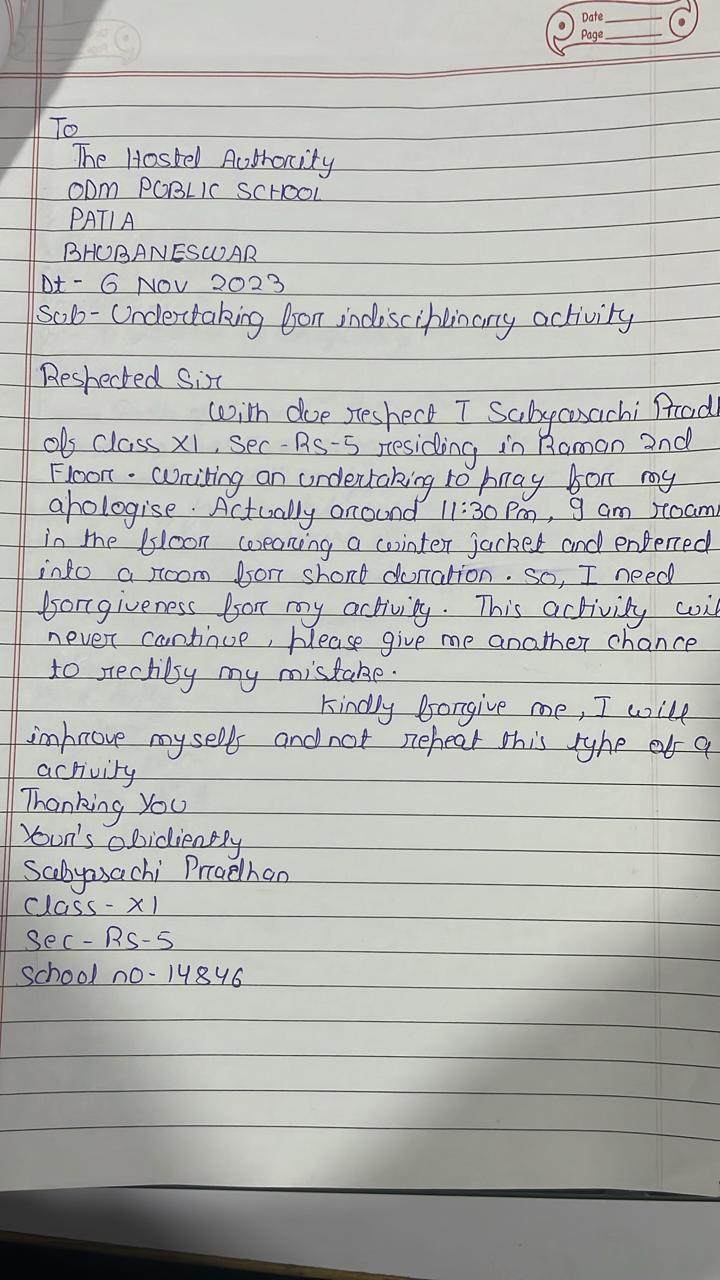 Date
Page
To
The Hostel Authority
ODM PUBLIC SCHOOL
PATIA
BHUBANESWAR
Dt - 6 NOV 2023
Sub- Undertaking for indisciplinary activity
Respected Sir
With due respect I Sabyasachi Prad
of Class XI, Sec-RS-5 residing in Raman 2nd
Floor. Writing an undertaking to pray for my
apologise. Actually around 11:30 Pm, I am roam
in the floor wearing a winter jacket and enterred
into a room for short duration. So, I need
forgiveness for my activity. This activity wil
never continue, please give me another chance
to rectify my mistake.
Kindly forgive me, I will
improve myself and not repeat this type of a
activity
Thanking You
Your's obidiently
Sabyasachi Pradhan
Class - XI
Sec - RS-5
School no - 14846